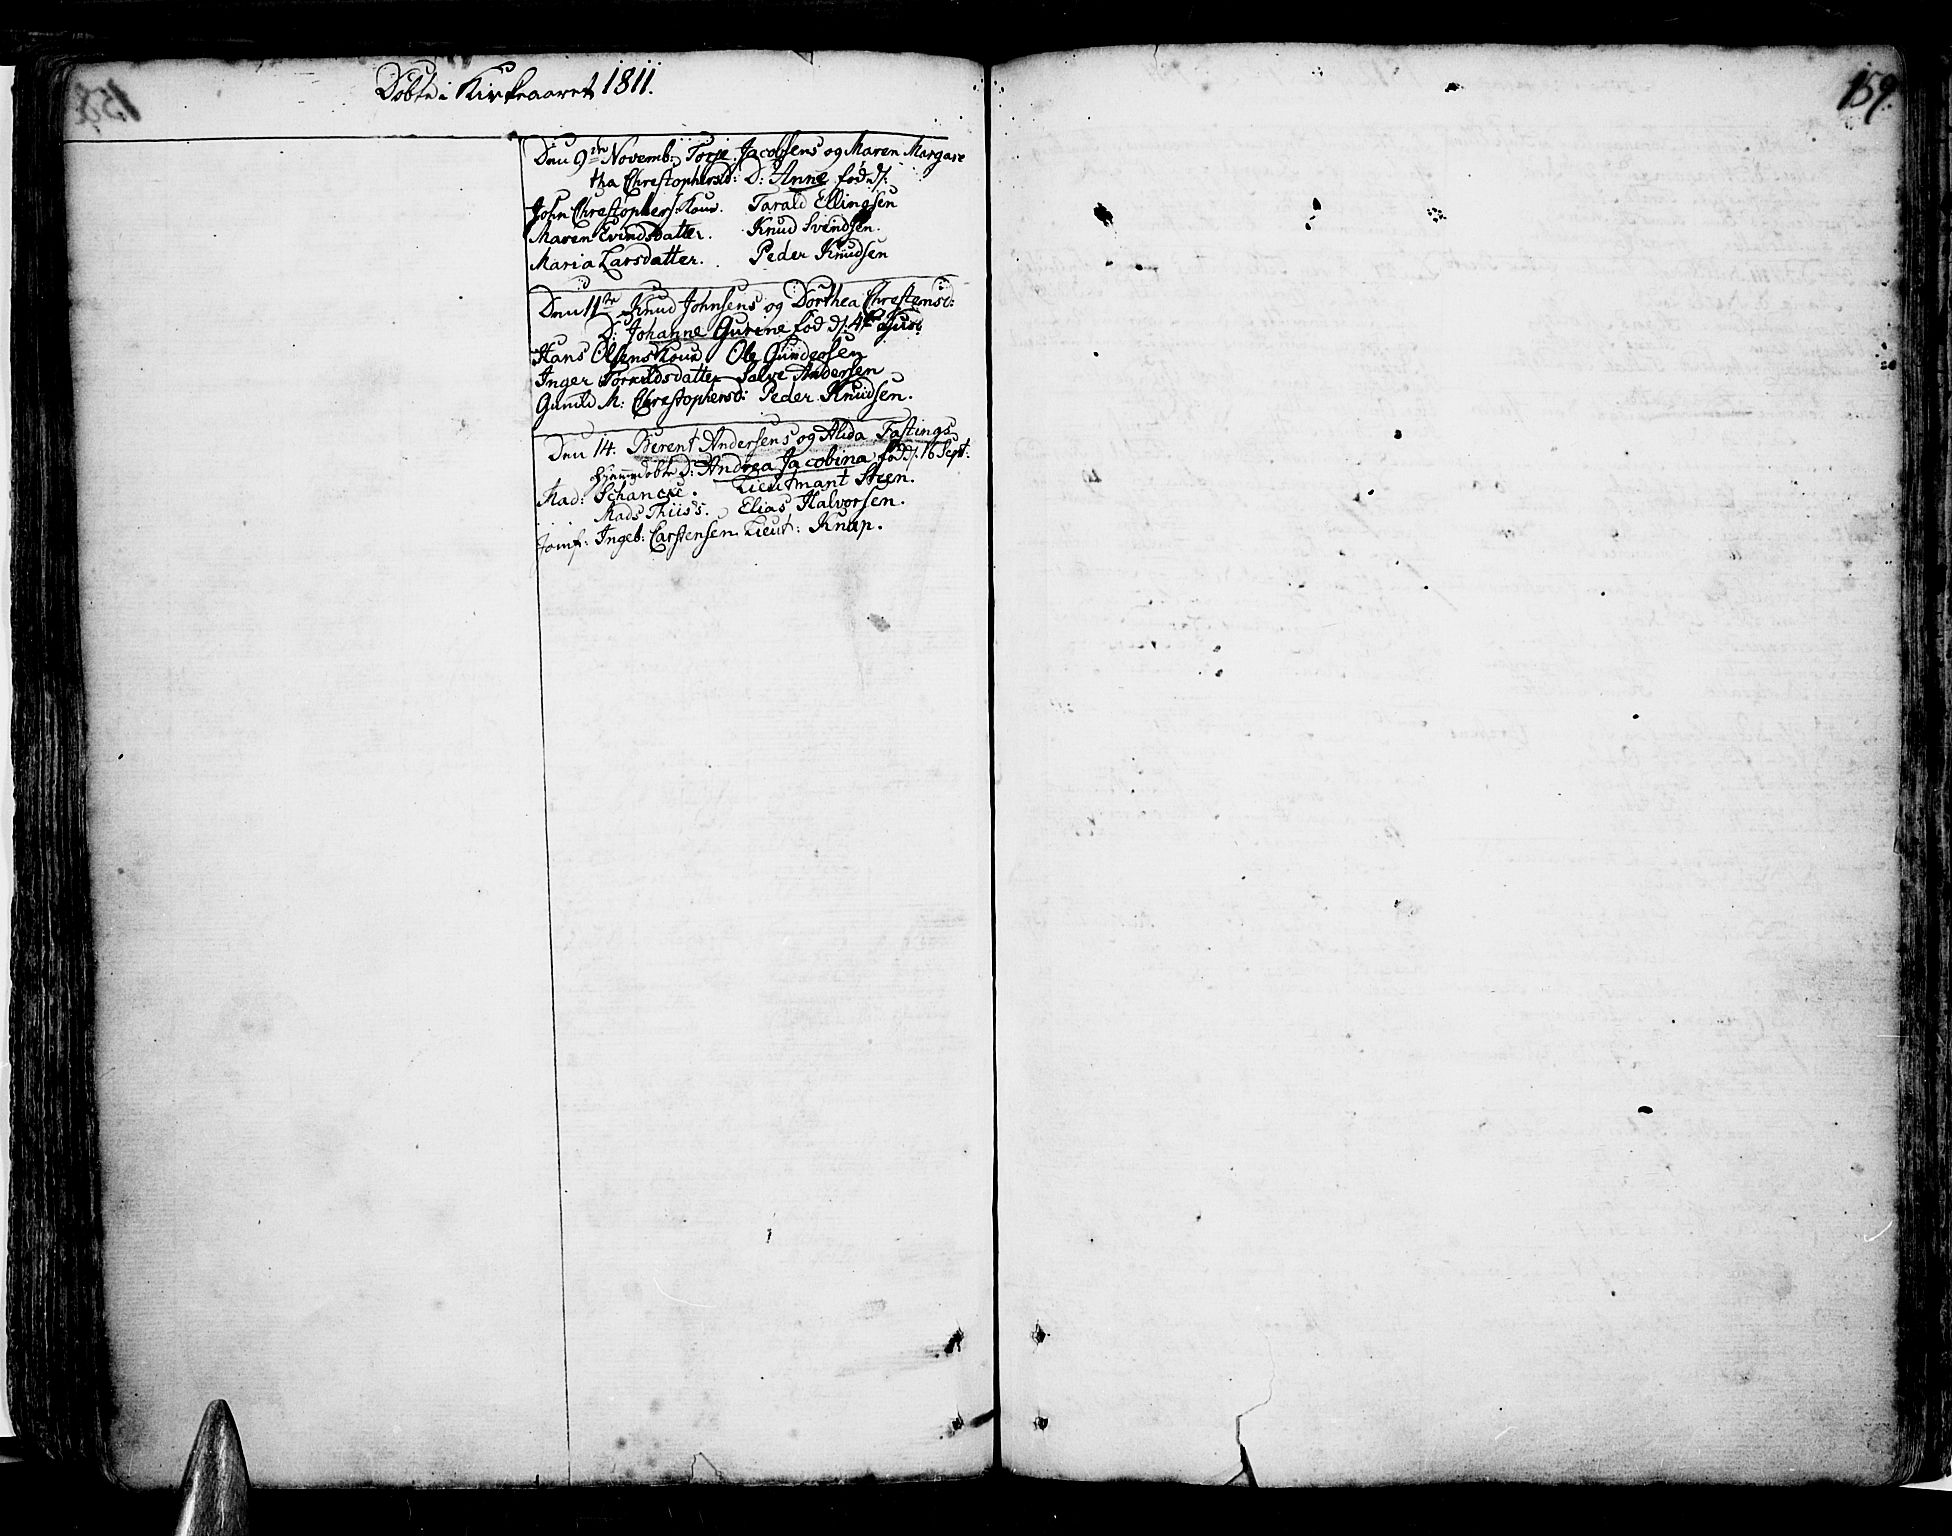 Döbte i Kirkeaaret 1811.
159.
Den 9de Novemb: Torje Jacobsens og Maren Margare
tha Chrestophersd: D: Anne föd d/:
John Chrestophers: Kone. Tarald Ellingsen
Maren Evindsdatter. Knud Svendsen.
Maria Larsdatter. Peder Knudsen
Den 11te Knud Johnsens og Dorthea Chrestensd:
D: Johanne Gurine föd d/: 4de
Hans Olsens Kone Ole Gundersen
Inger Torkildsdatter Salve Andersen
Gunild M: Chrestophersd: Peder Knudsen.
Den 14. Berent Andersens og Alida Fastings
hjemmedöbte D: Andrea Jacobina föd d/: 16 Sept:
Mad: Schancke. Lieutnant Steen.
Mads Thiis's. Elias Halvorsen.
Jomf: Ingeb: Carstensen. Lieut: Knap.